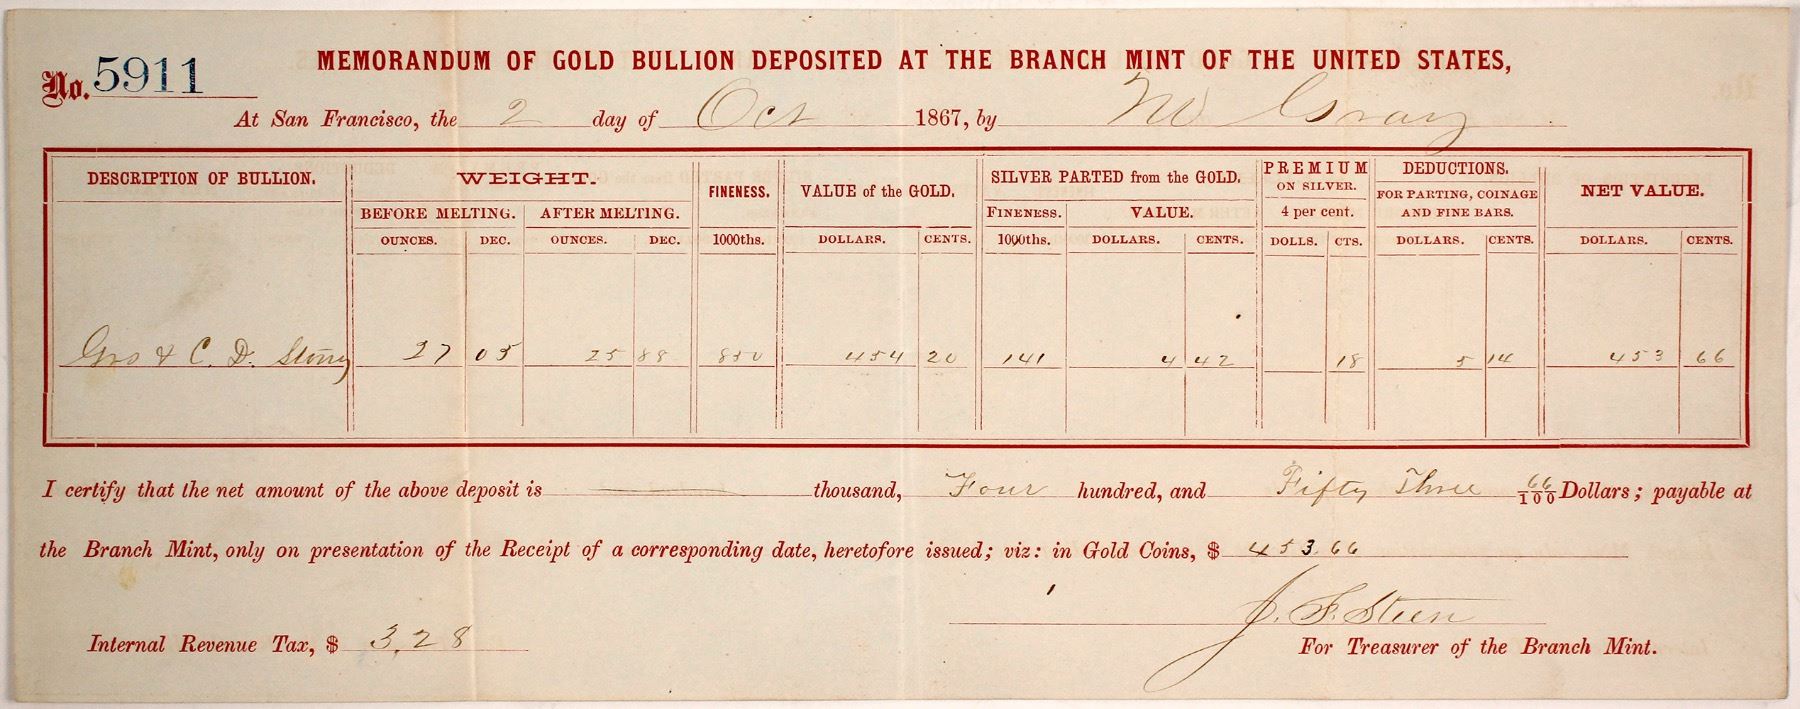 No. 5911
MEMORANDUM OF GOLD BULLION DEPOSITED AT THE BRANCH MINT OF THE UNITED STATES,
At San Francisco, the 2 day of Oct 1867, by Gray
DESCRIPTION OF BULLION. WEIGHT. FINENESS. VALUE of the GOLD. SILVER PARTED from the GOLD. PREMIUM ON SILVER. DEDUCTIONS. NET VALUE.
BEFORE MELTING. AFTER MELTING. FINENESS. VALUE. 4 per cent. FOR PARTING, COINAGE AND FINE BARS.
OUNCES. DEC. OUNCES. DEC. 1000ths. DOLLARS. CENTS. 1000ths. DOLLARS. CENTS. DOLLS. CTS. DOLLARS. CENTS. DOLLARS. CENTS.
& C. D. 27 05 25 88 850 454 20 141 4 42 18 5 14 453 66
I certify that the net amount of the above deposit is thousand, Four hundred, and Fifty Three 66/100 Dollars; payable at
the Branch Mint, only on presentation of the Receipt of a corresponding date, heretofore issued; viz: in Gold Coins, $ 453.66
J. F. Steen
Internal Revenue Tax, $ 3.28 For Treasurer of the Branch Mint.